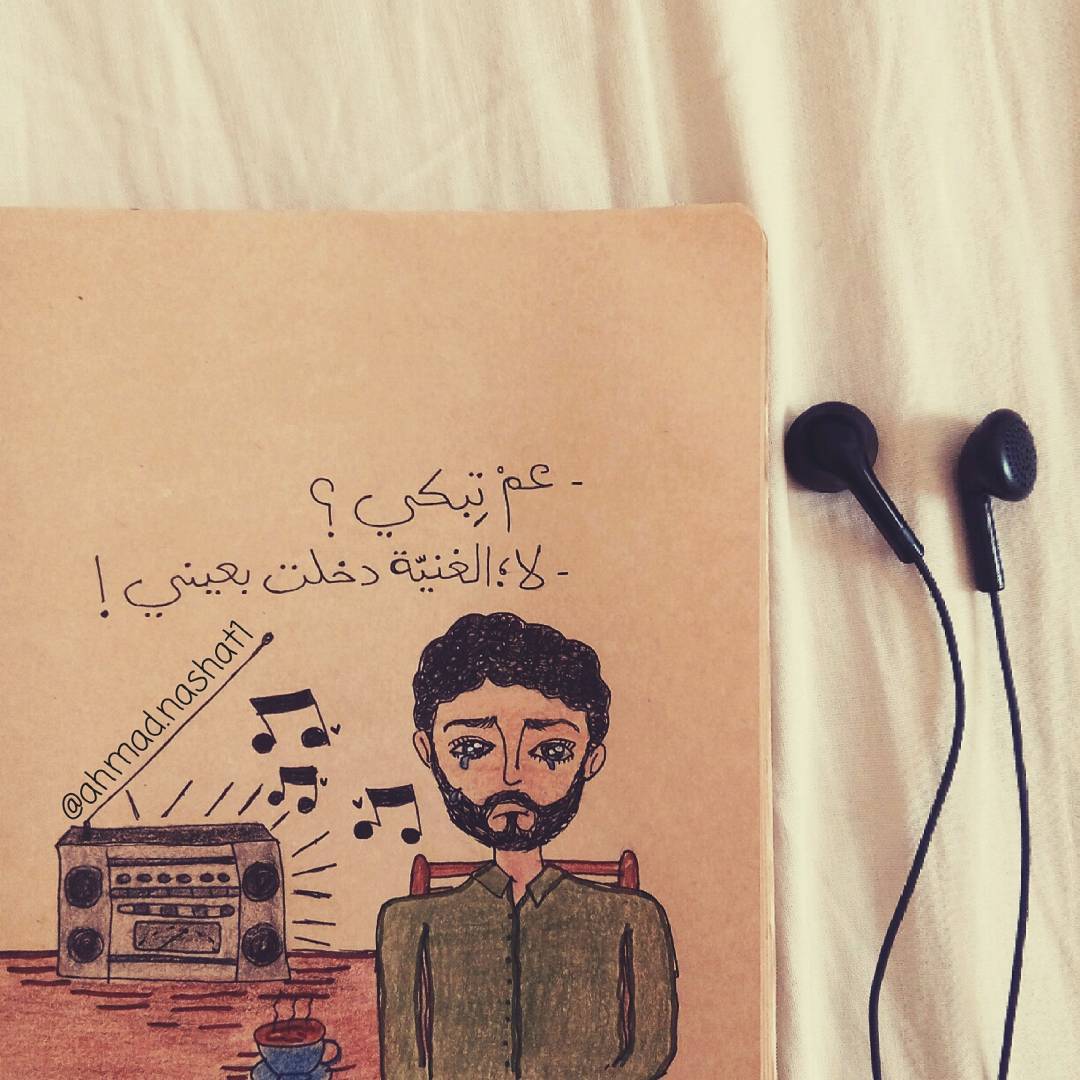 - عمْ تِبكي ؟
- لا؛ الغنيّة دخلت بعيني !
@ahmad.nashat1